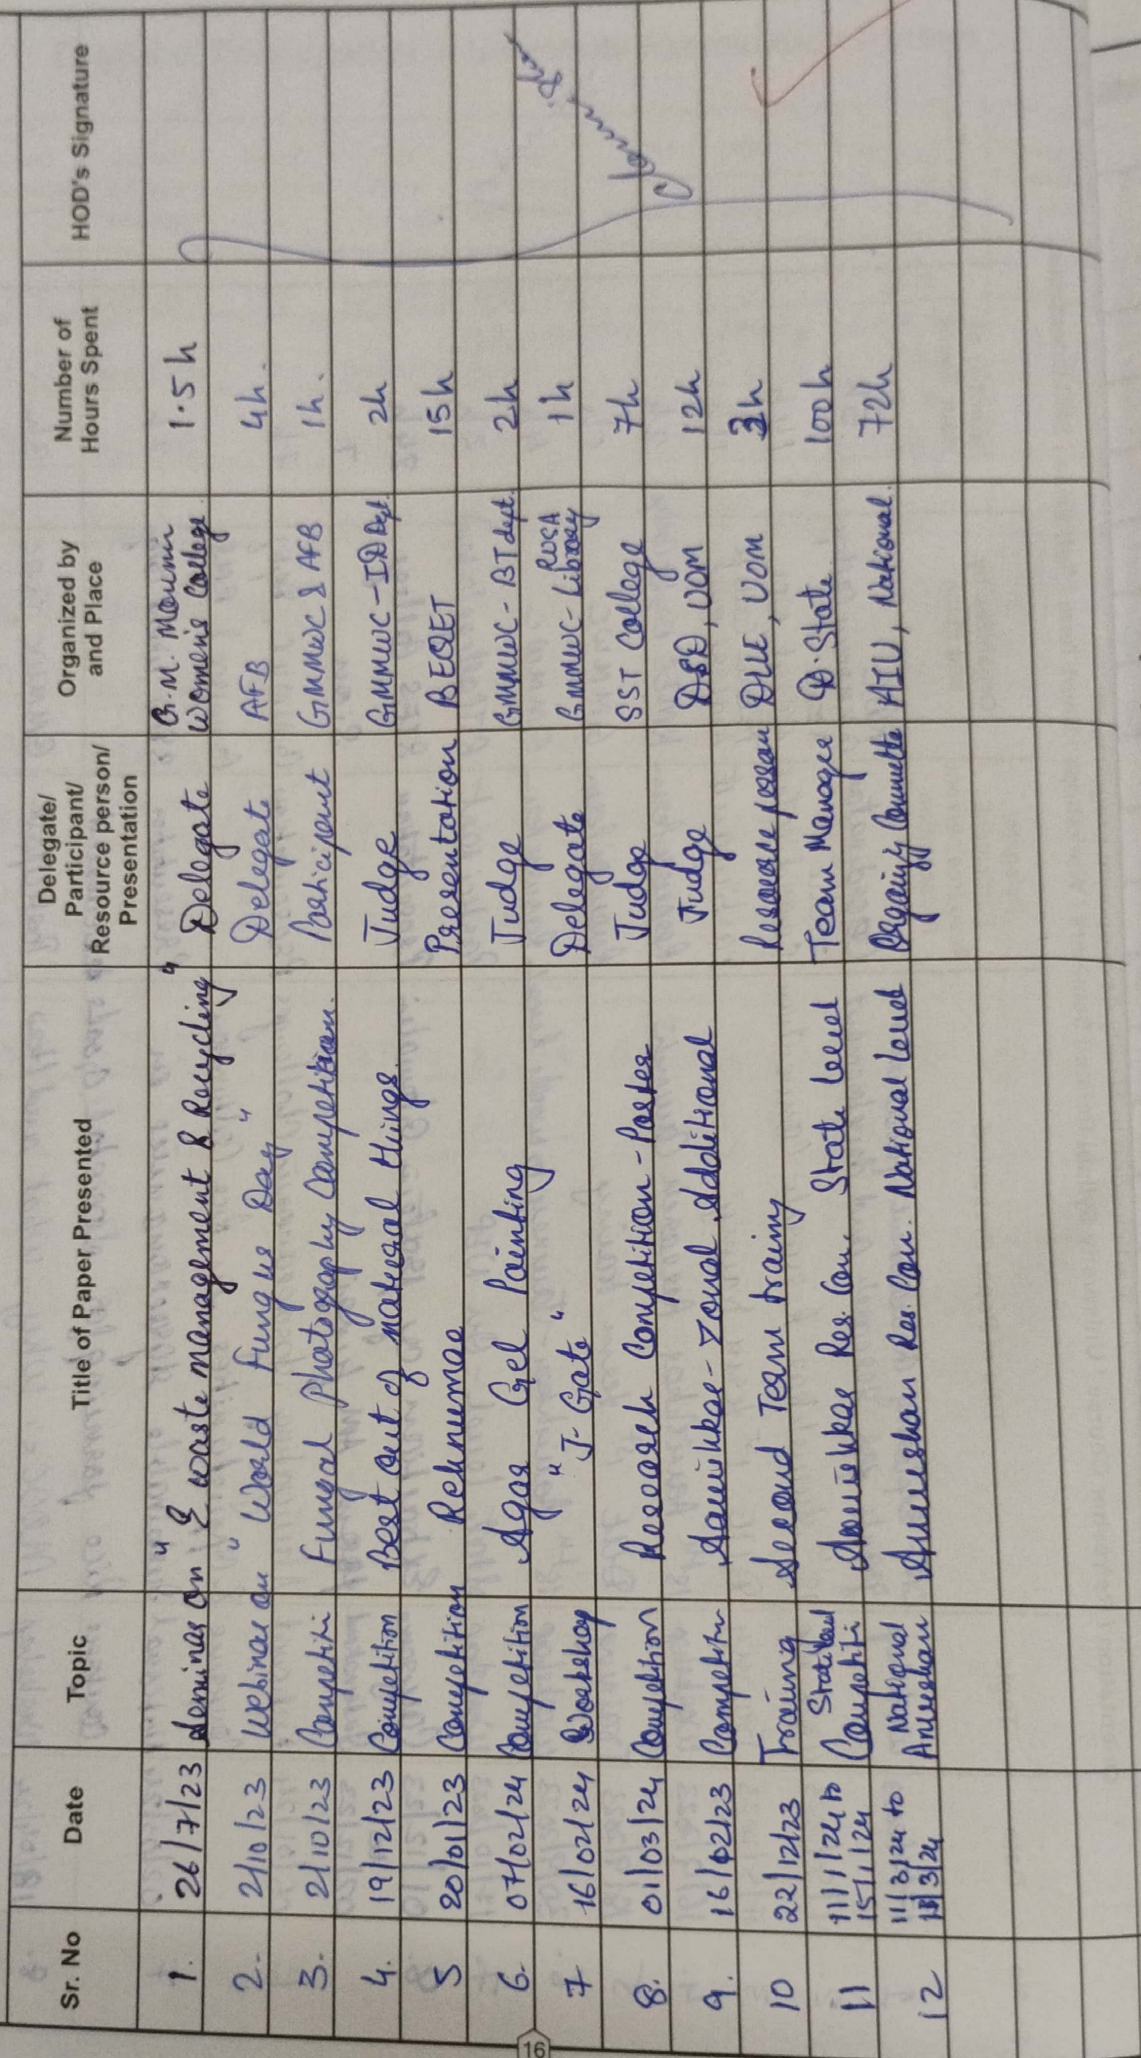 Sr. No Date Topic Title of Paper Presented Delegate/ Participant/ Resource person/ Presentation Organized by and Place Number of Hours Spent HOD's Signature
1. 26/7/23 Seminar on "E waste management & Recycling" Delegate G.M. Momin Women's College. 1.5h
2. 2/10/23 Webinar on "World Fungus Day" Delegate AFB 4h.
3. 2/10/23 Competiti Fungal Photography Competition. Participant GMMWC & AFB 1h.
4. 19/12/23 Competition Best out of natural things. Judge GMMWC-ID Dept. 2h
5 20/01/23 Competition Rehnumae Presentation BEQET 15h
6. 07/02/24 Competition Agar Gel Painting Judge GMMWC-BT dept. 2h
7 16/02/24 Workshop "J-Gate" Delegate GMMWC-Library RUSA 1h
8. 01/03/24 Competition Research Competition-Poster Judge SST College 7h
9. 16/02/23 Competiti Aavishkar-Zonal Additional Judge DSD, UOM 12h
10 22/12/23 Training Second Team training Resource person DLLE, UOM h
11 11/1/24 to 15/1/24 State level Competiti Avishkar Res. Con. State level Team Manager State 100h
12 11/3/24 to /3/24 National Anveshan Anveshan Res. Con. National level Organizg Committe AIU, National. 72h
16